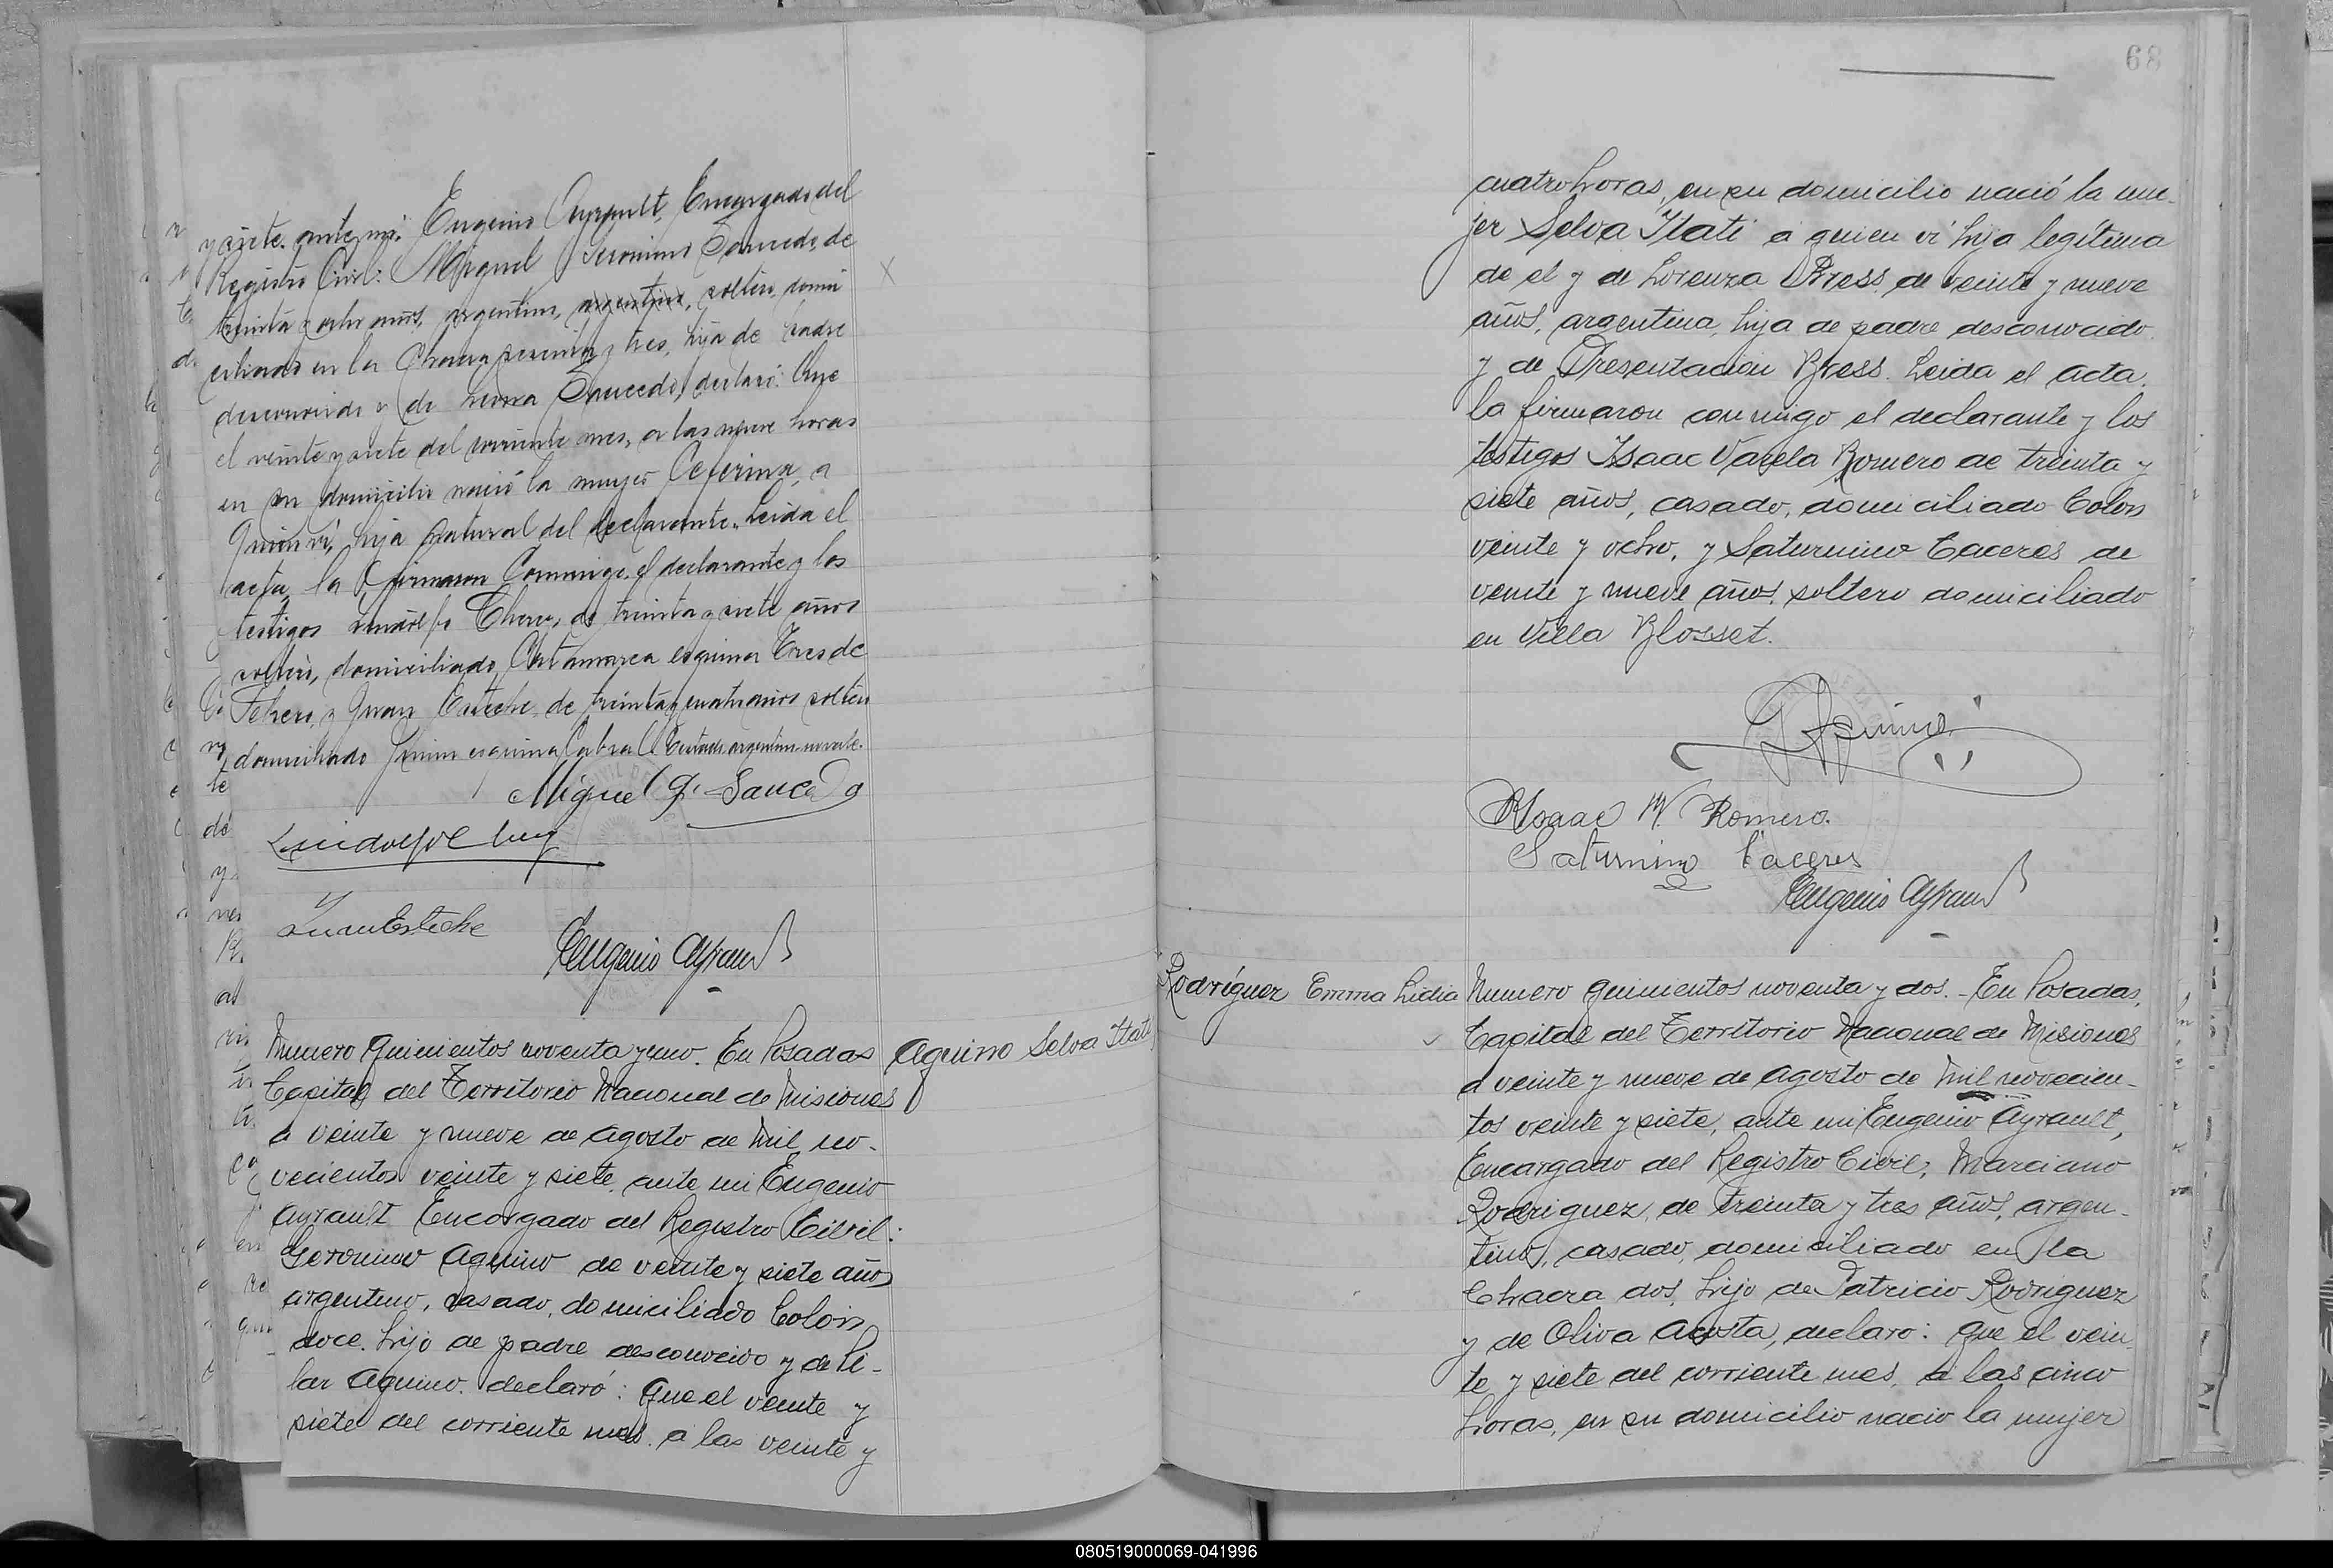 y siete. ante mi: Eugenio Ayrault, Encargado del
Registro Civil: Miguel Jeronimo Saucedo, de
treinta y ocho años, argentino, argentino, soltero, domi
ciliado en la Chacra sesenta y tres, hijo de padre
desconocido y de Saucedo, declaró: Que
el veinte y siete del corriente mes, a las nueve horas
en su domicilio nació la mujer Ceferina, a
quien vi, hija natural del declarante. Leida el
acta, la firmaron conmigo el declarante y los
testigos de treinta y siete años
soltero, domiciliado Catamarca esquina Tres de
Febrero, y Juan Esteche, de treinta y cuatro años soltero
domiciliado Junin esquina Cabral. argentino no vale.
Miguel G. Saucedo
Juan Esteche
Eugenio Ayrault
Numero quinientos noventa y uno. En Posadas
Aguino Selva Itati
Capital del Territorio Nacional de Misiones
a veinte y nueve de Agosto de Mil no-
vecientos veinte y siete, ante mi Eugenio
Ayrault Encargado del Registro Civil:
Geronimo Aquino de veinte y siete años
argentino, casado, domiciliado Colon
doce. hijo de padre desconocido y de Pi-
lar Aquino. declaró: Que el veinte y
siete del corriente mes. a las veinte y
68
cuatro horas, en su domicilio nació la mu-
jer Selva Itati a quien vi hija legitima
de el y de Lorenza Bress, de veinte y nueve
años, argentina, hija de padre desconocido
y de Presentacion Bress. Leida el acta.
la firmaron conmigo el declarante y los
testigos Isaac Varela Romero de treinta y
siete años, casado, domiciliado Colon
veinte y ocho, y Saturnino Caceres de
veinte y nueve años, soltero domiciliado
en Villa Blosset.
Isaac V. Romero.
Saturnino Caceres
Eugenio Ayrault
Rodríguez Emma Lidia
Numero quinientos noventa y dos. - En Posadas,
Capital del Territorio Nacional de Misiones
a veinte y nueve de Agosto de Mil novecien-
tos veinte y siete, ante mi Eugenio Ayrault,
Encargado del Registro Civil; Marciano
Rodriguez, de treinta y tres años, argen-
tino, casado, domiciliado en la
Chacra dos, hijo de Patricio Rodriguez
y de Oliva Acosta, declaro: Que el vein
te y siete del corriente mes, a las cinco
horas, en su domicilio nacio la mujer
080519000069-041996